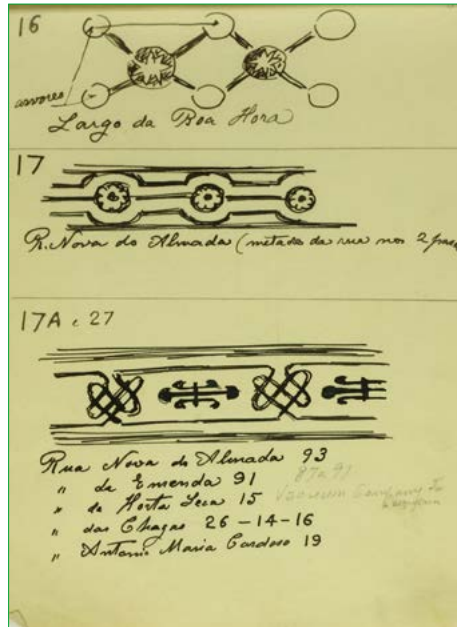 16
arvores
Largo da Boa Hora
17
R. Nova do Almada (metade da rua nos 2
17A e 27
Rua Nova do Almada 93
" da Emenda 91
" da Horta Seca 15
" das Chagas 26-14-16
" Antonio Maria Cardoso 19
87 a 91
Vacuum Company